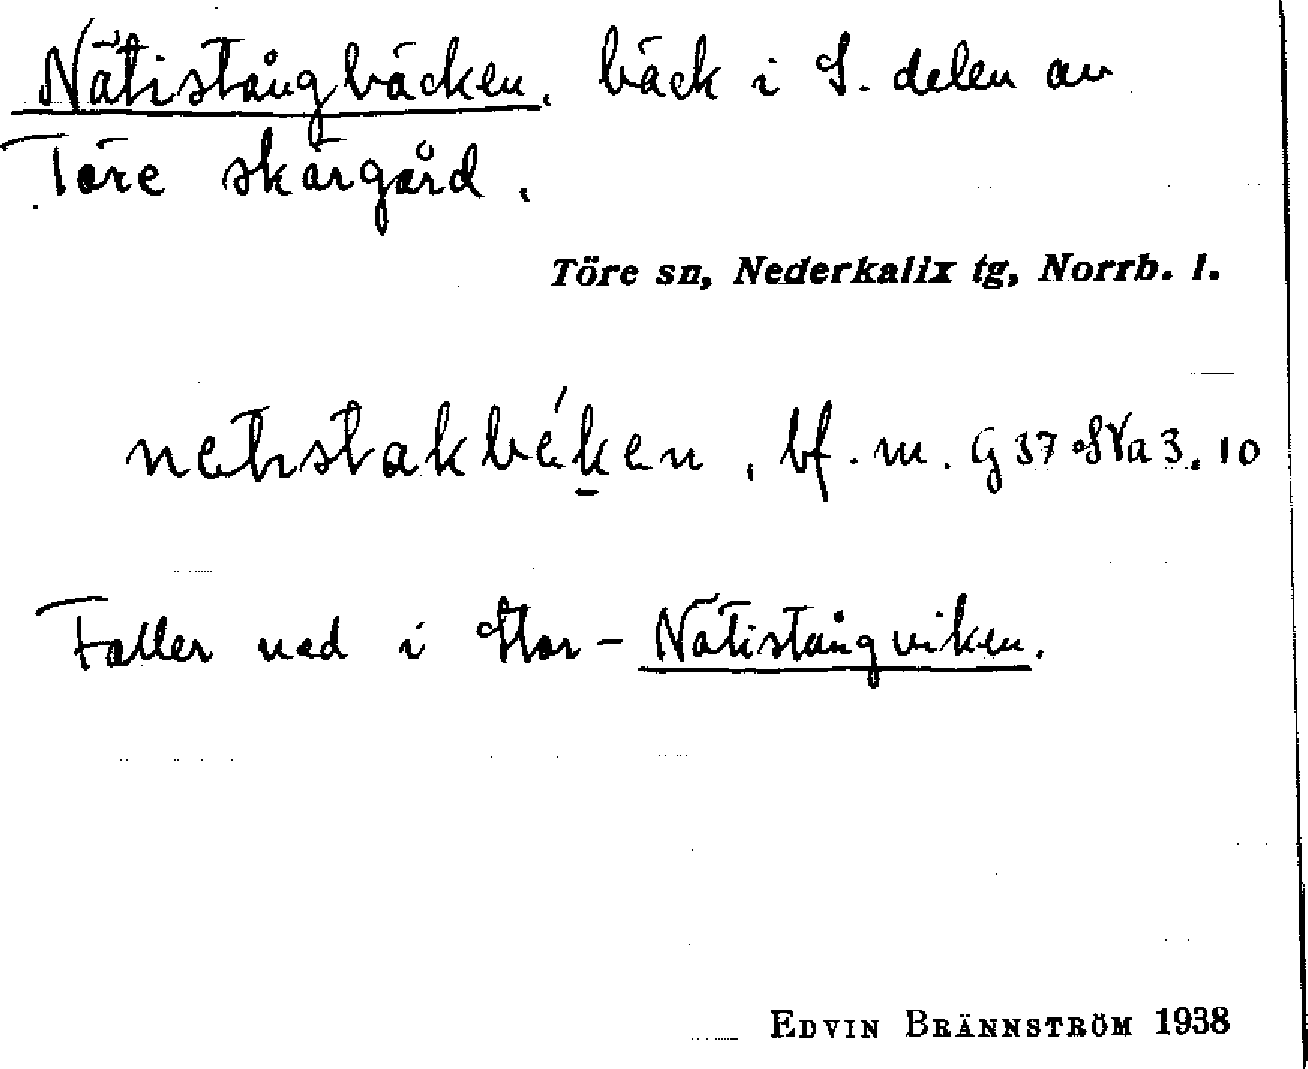 Nätistångbäcken, bäck i S. delen av
Töre skärgård.
Töre sn, Nederkalix tg, Norrb. l.
netistakbéken, bf. m. G 37 SVa 3. 10
Faller ned i Stor-Nätistångviken.
EDVIN BRÄNNSTRÖM 1938